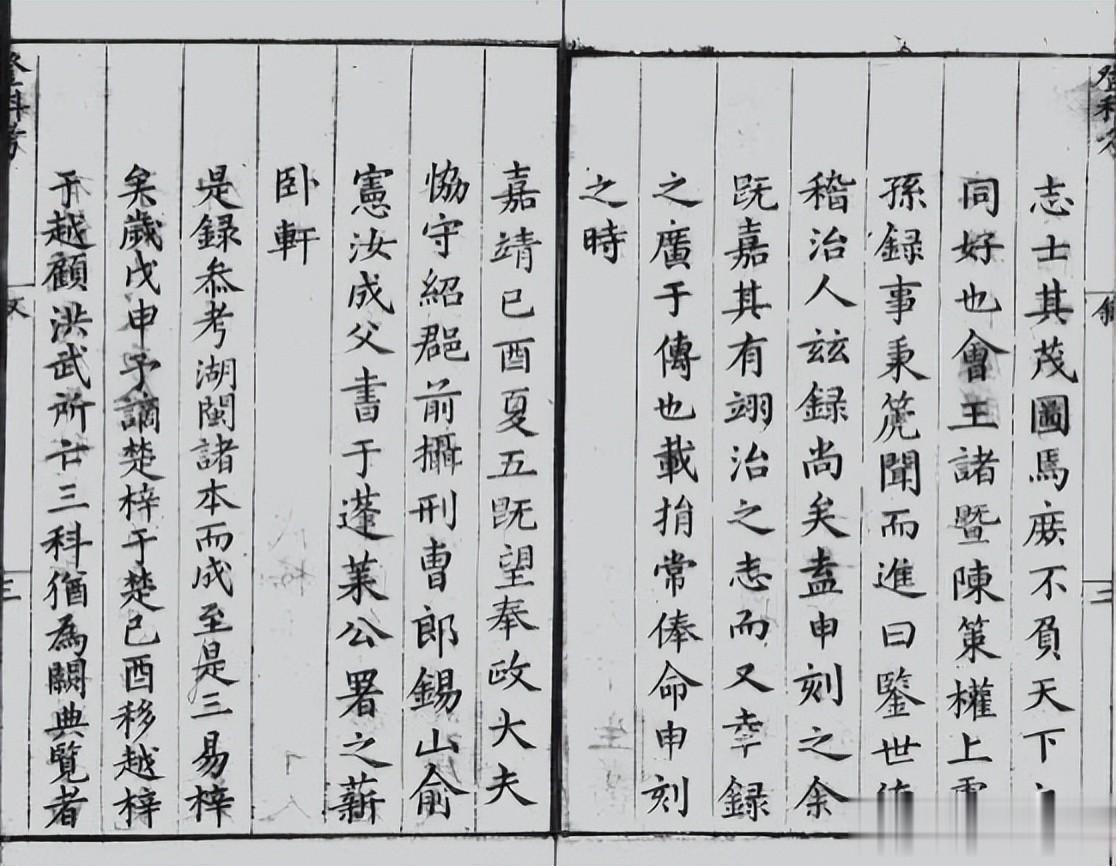 志士其茂圖焉庻不負天下
同好也會王諸暨陳策權上
孫錄事秉箎聞而進曰鑒世
稽治人玆録尚矣盍申刻之余
旣嘉其有翊治之志而又幸録
之廣于傳也載捐常俸命申刻
之時
嘉靖己酉夏五旣望奉政大夫
恊守紹郡前攝刑曹郎錫山俞
憲汝成父書于蓬萊公署之薪
卧軒
是録叅考湖閩諸本而成至是三易梓
矣歲戊申予謫楚梓于楚己酉移越梓
于越顧洪武所亡三科猶為闕典覽者
登科考
文
三